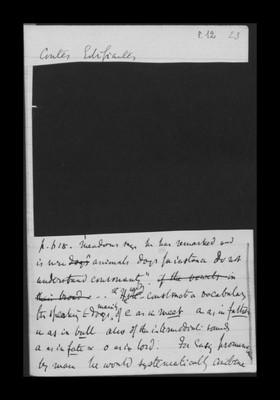 p. 12 23
Contes Edifiantes
p. 618. Meadows says he has remarked and
is sure dogs animals dogs for instance do not
understand consonants" of the vowels in
their broad & .. "I would construct a vocabulary
for speaking to dogs, mainly of e as in meet a as in father
u as in bull also of the intermediate sounds
a as in fate & o as in lord. For easy
by man he would systematically combine